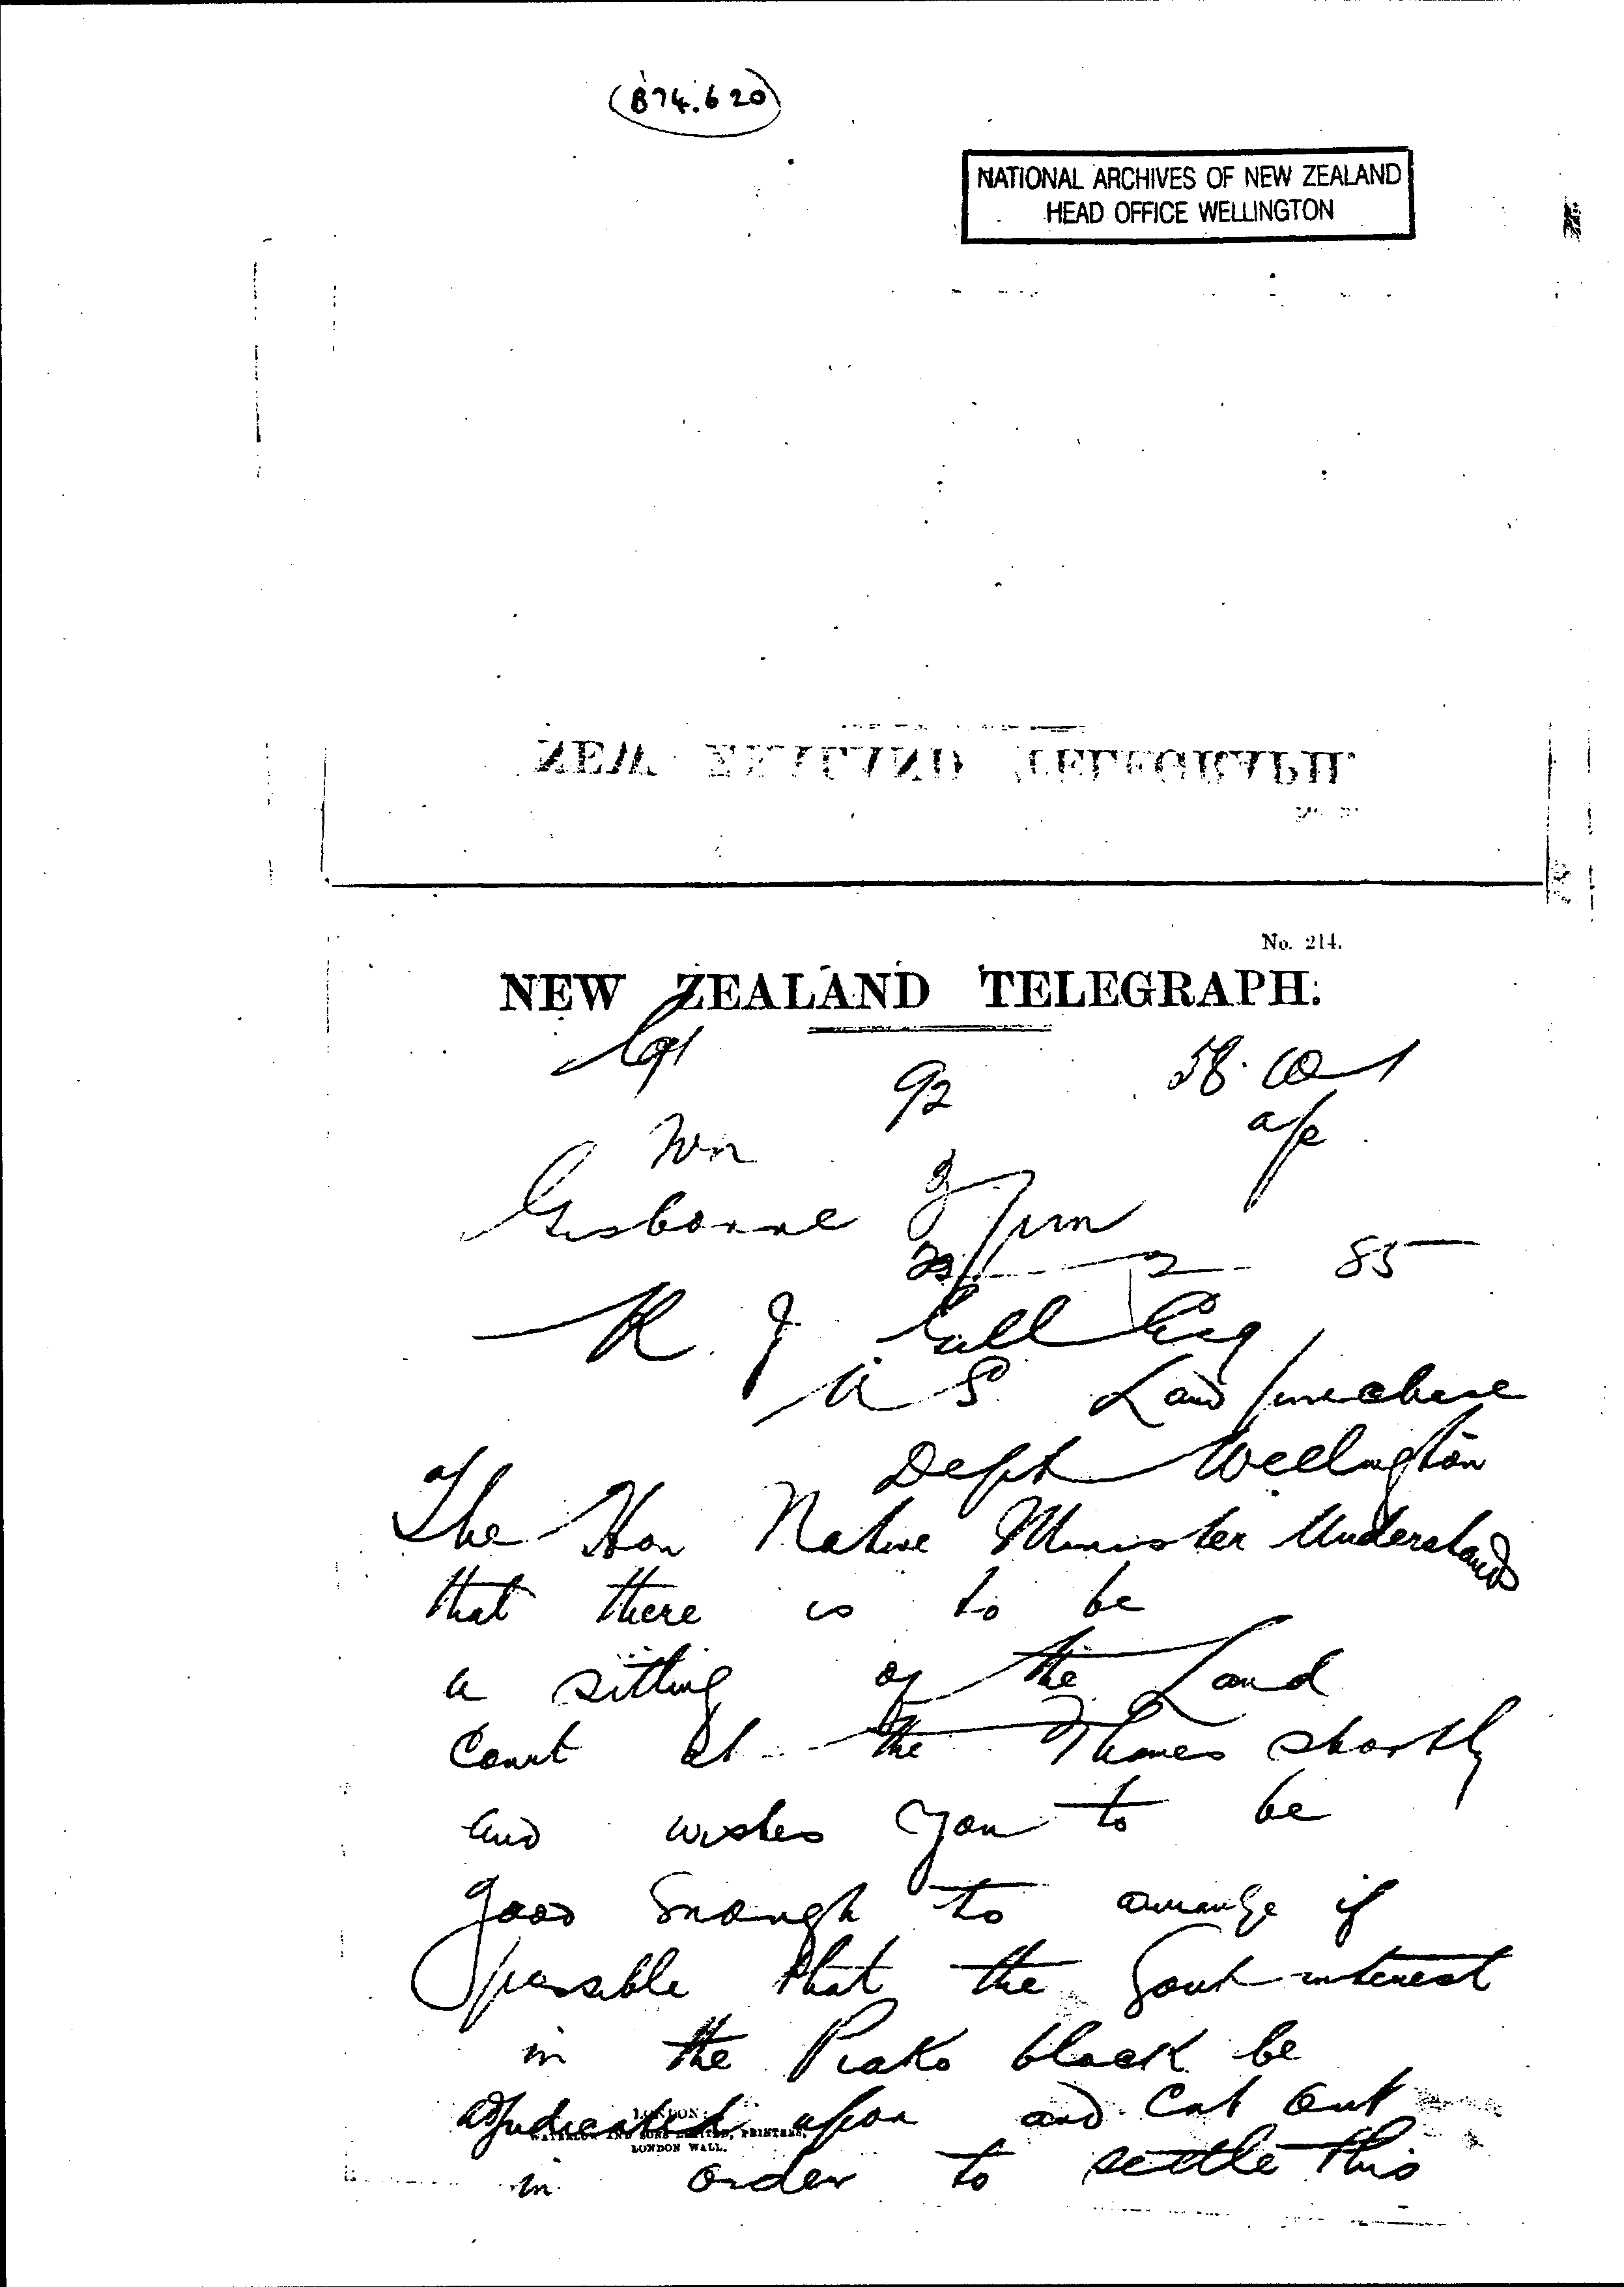 (874.620)
NATIONAL ARCHIVES OF NEW ZEALAND
HEAD OFFICE WELLINGTON
NEW ZEALAND TELEGRAPH.
No. 214.
NEW ZEALAND TELEGRAPH.
92
Wn
Gisborne
2 85
R. J. Gill Esq
U S Land purchase
Dept Wellington
The Hon Native Minister Understands
that there is to be
a sitting of the Land
Court at the Thames shortly
and wishes you to be
good Enough to arrange if
possible that the Govt interest
in the Piako block be
adjudicated upon and Cut out
LONDON:
WATERLOW AND SONS LIMITED, PRINTERS,
LONDON WALL.
in order to settle this